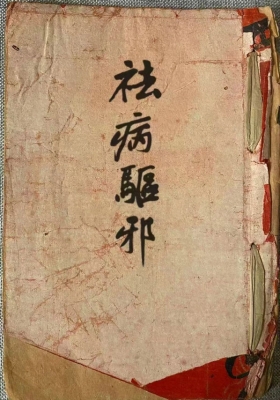 祛病驅邪